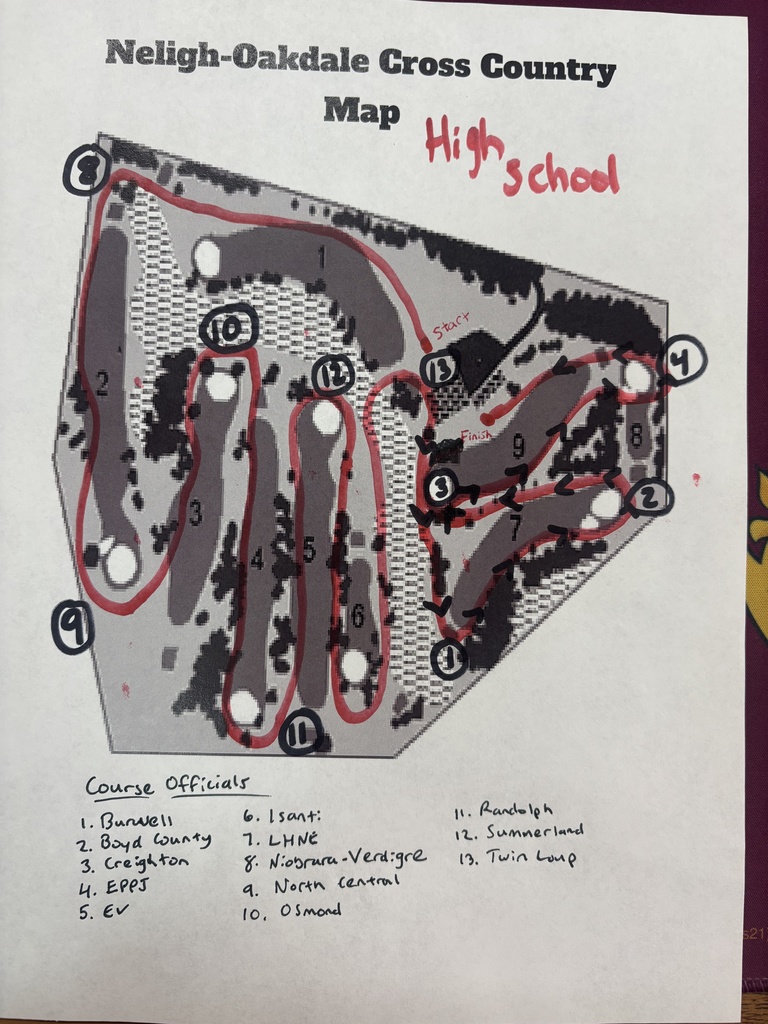 Neligh-Oakdale Cross Country
Map
High
School
8
1
Start
10
13
12
4
2
Finish
9
8
3
3
2
7
4
5
6
9
1
11
Course Officials
1. Burwell
2. Boyd County
3. Creighton
4. EPPJ
5. EV
6. Isanti
7. LHNE
8. Niobrara-Verdigre
9. North Central
10. Osmond
11. Randolph
12. Summerland
13. Twin Loup
s21